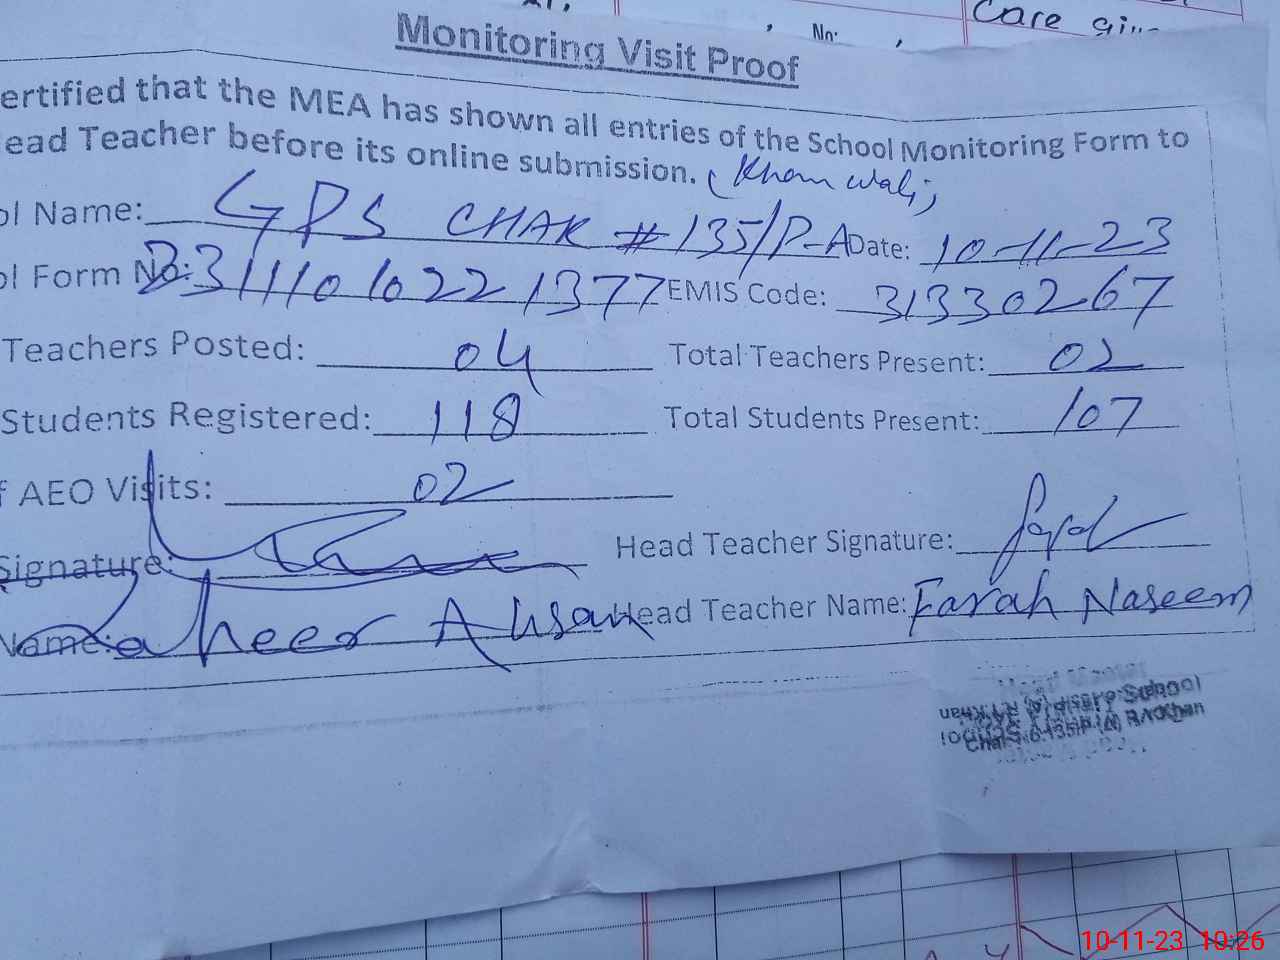 No:
Care giv
Monitoring Visit Proof
ertified that the MEA has shown all entries of the School Monitoring Form to
ead Teacher before its online submission. (Khan wali)
ol Name: GPS CHAK # 135/P-A Date: 10-11-23
ol Form No: B3111010221377 EMIS Code: 31330267
Teachers Posted: 04 Total Teachers Present: 02
Students Registered: 118 Total Students Present: 107
f AEO Visits: 02
Signature: Head Teacher Signature:
Name: Zaheer Ahsan Head Teacher Name: Farah Naseem
10-11-23 10:26